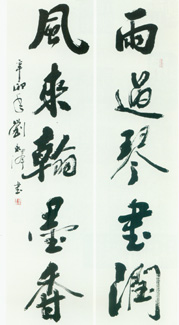 雨過琴書潤
風來翰墨香
辛卯年劉
書